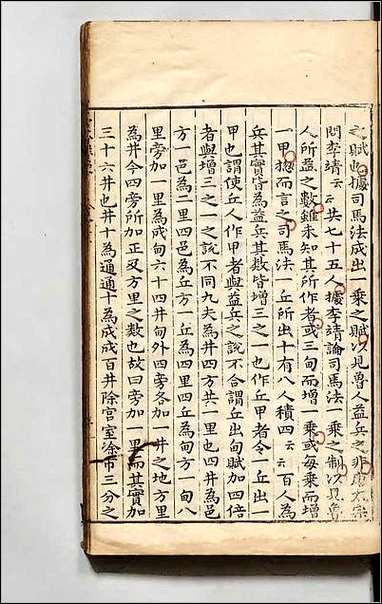 之賦也據司馬法成出一乘之賦以見魯人益兵之非唐太宗
問李靖云云共七十五人據李靖論司馬法一乘之制以見魯
人所益之數雖未知其所作者或三甸而增一乘或每乘而增
一甲揔而言之司馬法一丘所出十有八人積四云云百人為
兵其實皆為益兵其數皆增三之一也作丘甲者令一丘出一
甲也謂使丘人作甲者與益兵之說不合謂丘出甸賦加四倍
者與增三之一之說不同九夫為井四方共一里也四井為邑
方一邑為二里四邑為丘方一丘為四里四丘為甸方一甸八
里旁加一里為成甸六十四井甸外四旁各加一井之地方里
為井今四旁所加正又方里之數也故曰旁加一里而其實加
三十六井也井十為通通十為成成百井除宮室涂巿三分之